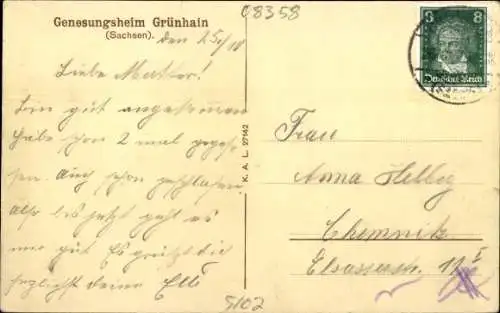 08358
Genesungsheim Grünhain
(Sachsen).
den 25./10
Liebe Mutter!
Bin gut angekommen
habe schon 2 mal geges-
sen. Auch schon geschlafen
Also bis jetzt geht es
mir gut Es grüßt die
herzlichst deine Elli
K. A. L. 27142
8 8
Deutsches Reich
Frau
Anna Helbig
Chemnitz
Elsasserstr. 11 I
5102